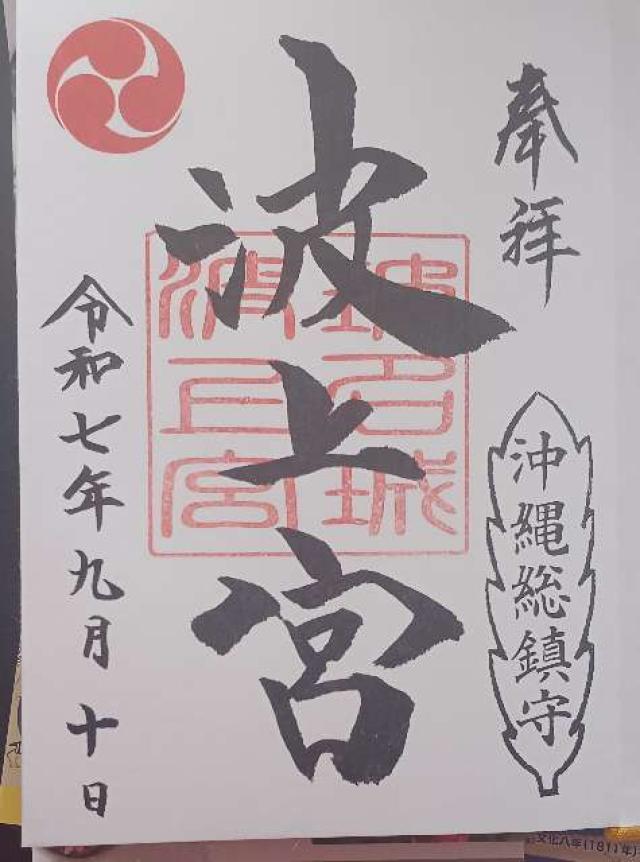 奉拝
沖縄総鎮守
波上宮
琉名城
波上宮
令和七年九月十日
文化八年(1811年)